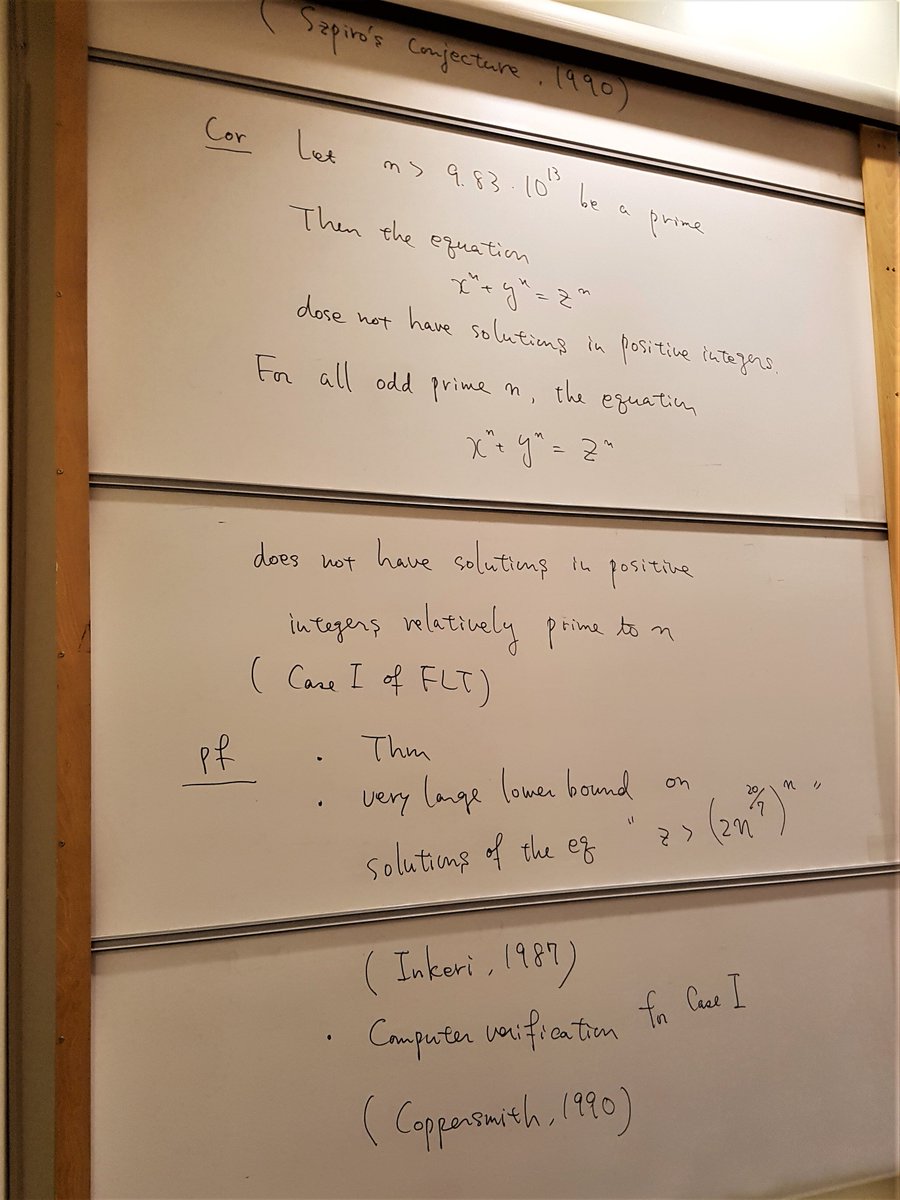 ( Szpiro's Conjecture, 1990)
Cor Let n > 9.83 · 10^13 be a prime
Then the equation
x^n + y^n = z^n
dose not have solutions in positive integers.
For all odd prime n, the equation
x^n + y^n = z^n
does not have solutions in positive
integers relatively prime to n
( Case I of FLT)
pf · Thm
· very large lower bound on
solutions of the eq " z > (2n^20/7)^n "
( Inkeri, 1987)
· Computer verification for Case I
( Coppersmith, 1990)